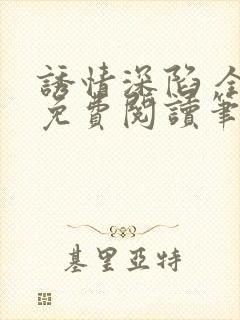 誘情深陷 全
免費閱讀筆
基里亞特